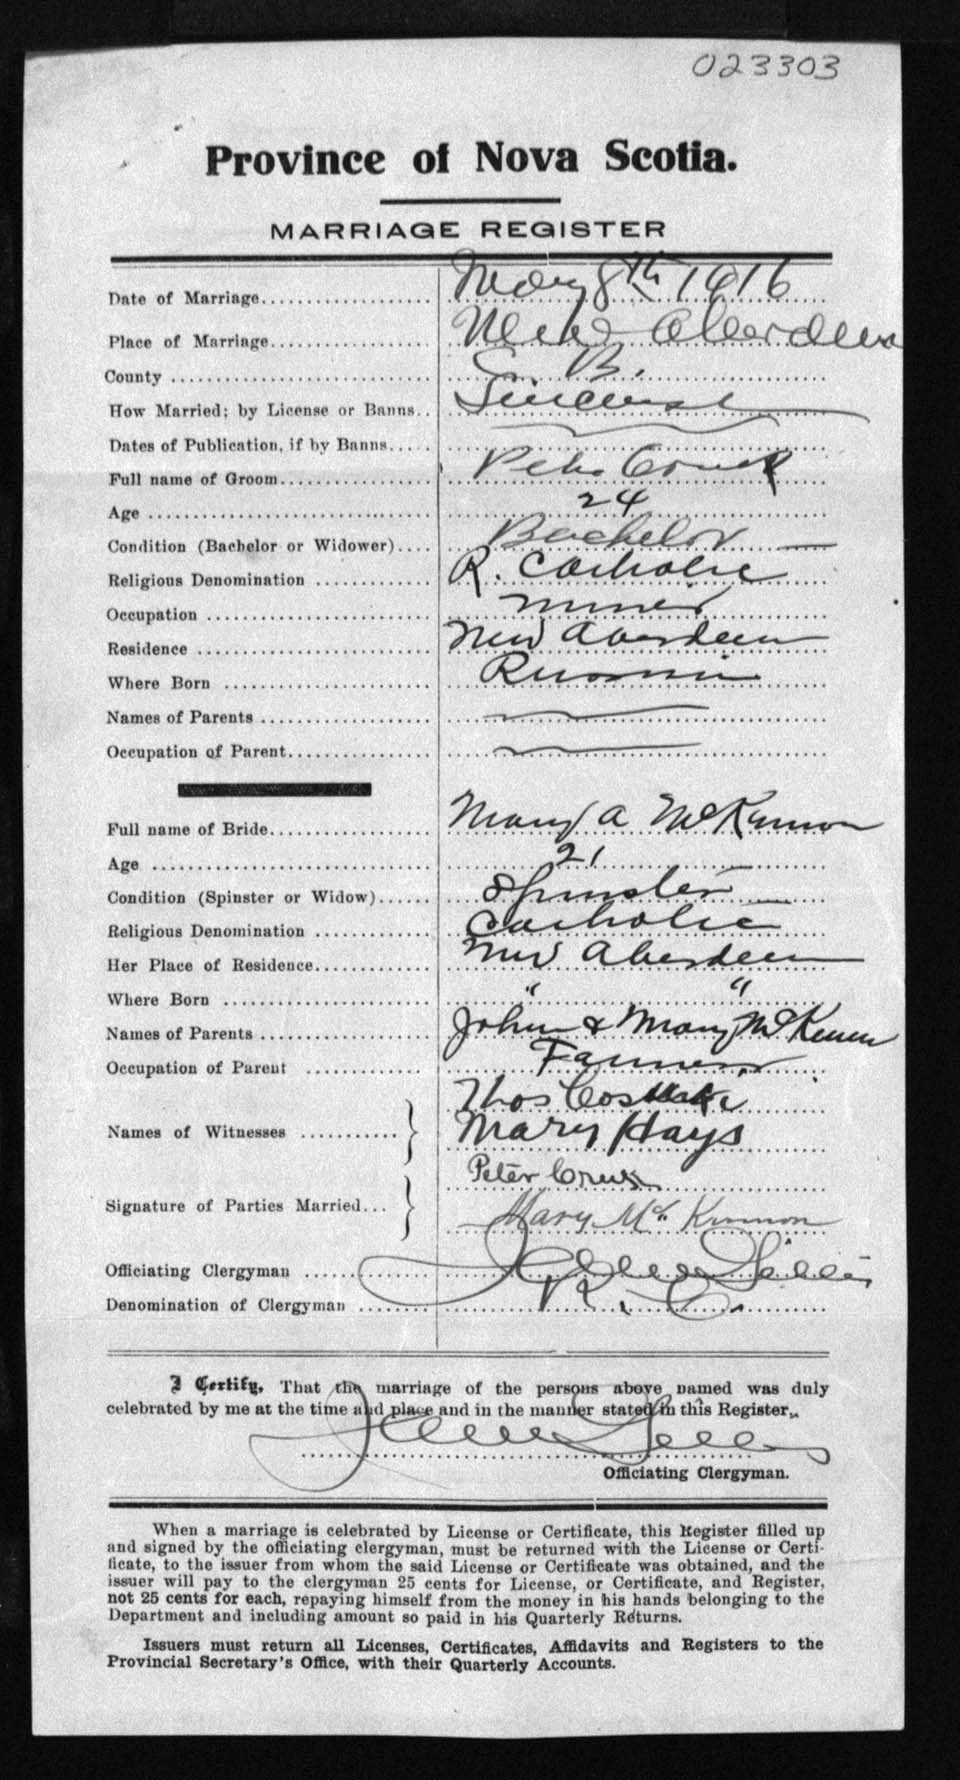 023303
Province of Nova Scotia.
MARRIAGE REGISTER
Date of Marriage.................... May 8th 1916
Place of Marriage................... New Aberdeen
County .............................. C. B.
How Married; by License or Banns.. License
Dates of Publication, if by Banns.....
Full name of Groom.................. Peter
Age ................................. 24
Condition (Bachelor or Widower).... Bachelor
Religious Denomination ............. R. Catholic
Occupation .......................... Miner
Residence ........................... New Aberdeen
Where Born ......................... Russia
Names of Parents ...................
Occupation of Parent................
Full name of Bride................... Mary A McKinnon
Age ................................. 21
Condition (Spinster or Widow)...... Spinster
Religious Denomination ............. Catholic
Her Place of Residence.............. New Aberdeen
Where Born ......................... " "
Names of Parents ................... John & Mary McKinnon
Occupation of Parent .............. Farmer
Thos
Names of Witnesses ........... Mary Hays
Peter
Signature of Parties Married... Mary McKinnon
Officiating Clergyman ............
Denomination of Clergyman ........ R. C.
I Certify, That the marriage of the persons above named was duly
celebrated by me at the time and place and in the manner stated in this Register.
Officiating Clergyman.
When a marriage is celebrated by License or Certificate, this Register filled up
and signed by the officiating clergyman, must be returned with the License or Certi-
ficate, to the issuer from whom the said License or Certificate was obtained, and the
issuer will pay to the clergyman 25 cents for License, or Certificate, and Register,
not 25 cents for each, repaying himself from the money in his hands belonging to the
Department and including amount so paid in his Quarterly Returns.
Issuers must return all Licenses, Certificates, Affidavits and Registers to the
Provincial Secretary's Office, with their Quarterly Accounts.